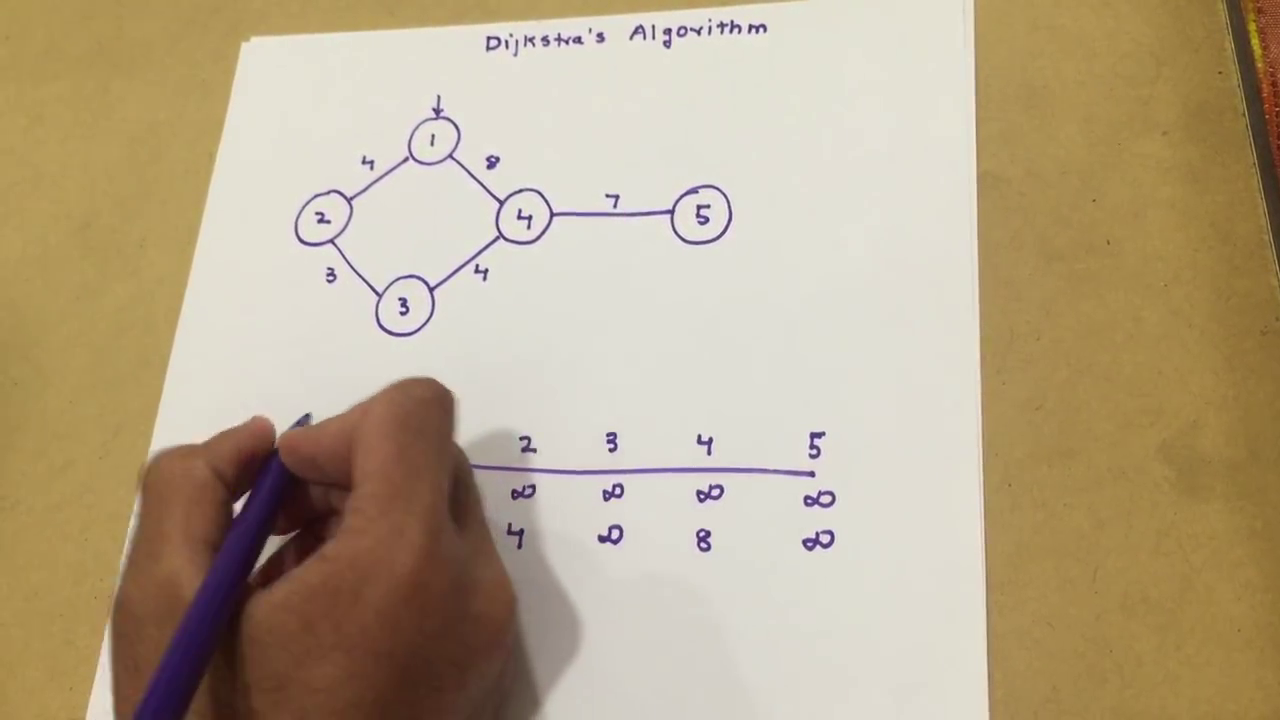 Dijkstra's Algorithm
1
4 8
2 4 7 5
3 4
3
2 3 4 5
∞ ∞ ∞ ∞
4 ∞ 8 ∞